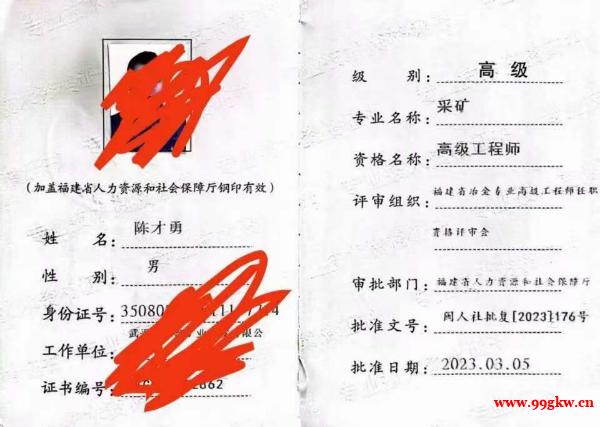 (加盖福建省人力资源和社会保障厅钢印有效)
姓 名: 陈才勇
性 别: 男
身份证号:
工作单位:
证书编号:
级 别: 高 级
专业名称: 采矿
资格名称: 高级工程师
评审组织: 福建省冶金专业高级工程师任职
资格评审会
审批部门: 福建省人力资源和社会保障厅
批准文号: 闽人社批复[2023]176号
批准日期: 2023.03.05
www.99gkw.cn